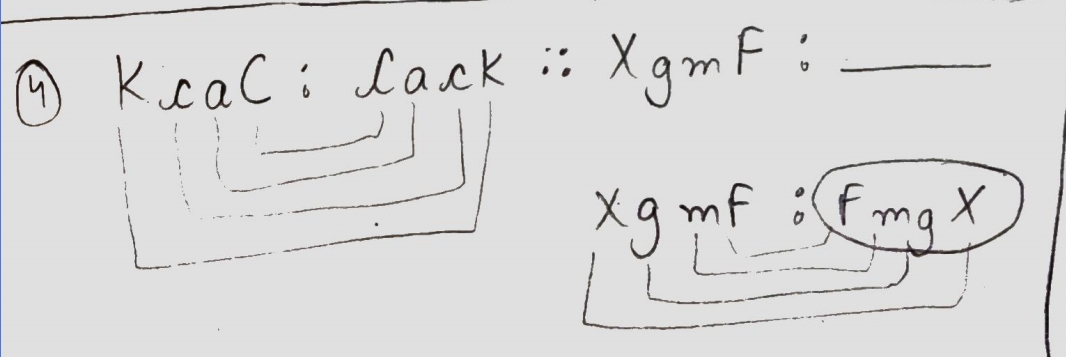 (4) KcaC : Cack :: XgmF : ____
XgmF : FmgX